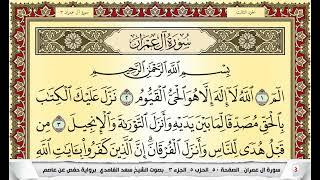 سُورَةُ آلِ عِمْرَان
بِسْمِ ٱللَّهِ ٱلرَّحْمَٰنِ ٱلرَّحِيمِ
الٓمٓ ١ ٱللَّهُ لَآ إِلَٰهَ إِلَّا هُوَ ٱلْحَىُّ ٱلْقَيُّومُ ٢ نَزَّلَ عَلَيْكَ ٱلْكِتَٰبَ
بِٱلْحَقِّ مُصَدِّقًا لِّمَا بَيْنَ يَدَيْهِ وَأَنزَلَ ٱلتَّوْرَىٰةَ وَٱلْإِنجِيلَ ٣ مِن
قَبْلُ هُدًى لِّلنَّاسِ وَأَنزَلَ ٱلْفُرْقَانَ إِنَّ ٱلَّذِينَ كَفَرُوا۟ بِـَٔايَٰتِ ٱللَّهِ
سورة آل عمران الصفحة ٥٠ الحزب ٥ الجزء ٣ بصوت الشيخ سعد الغامدي برواية حفص عن عاصم 3